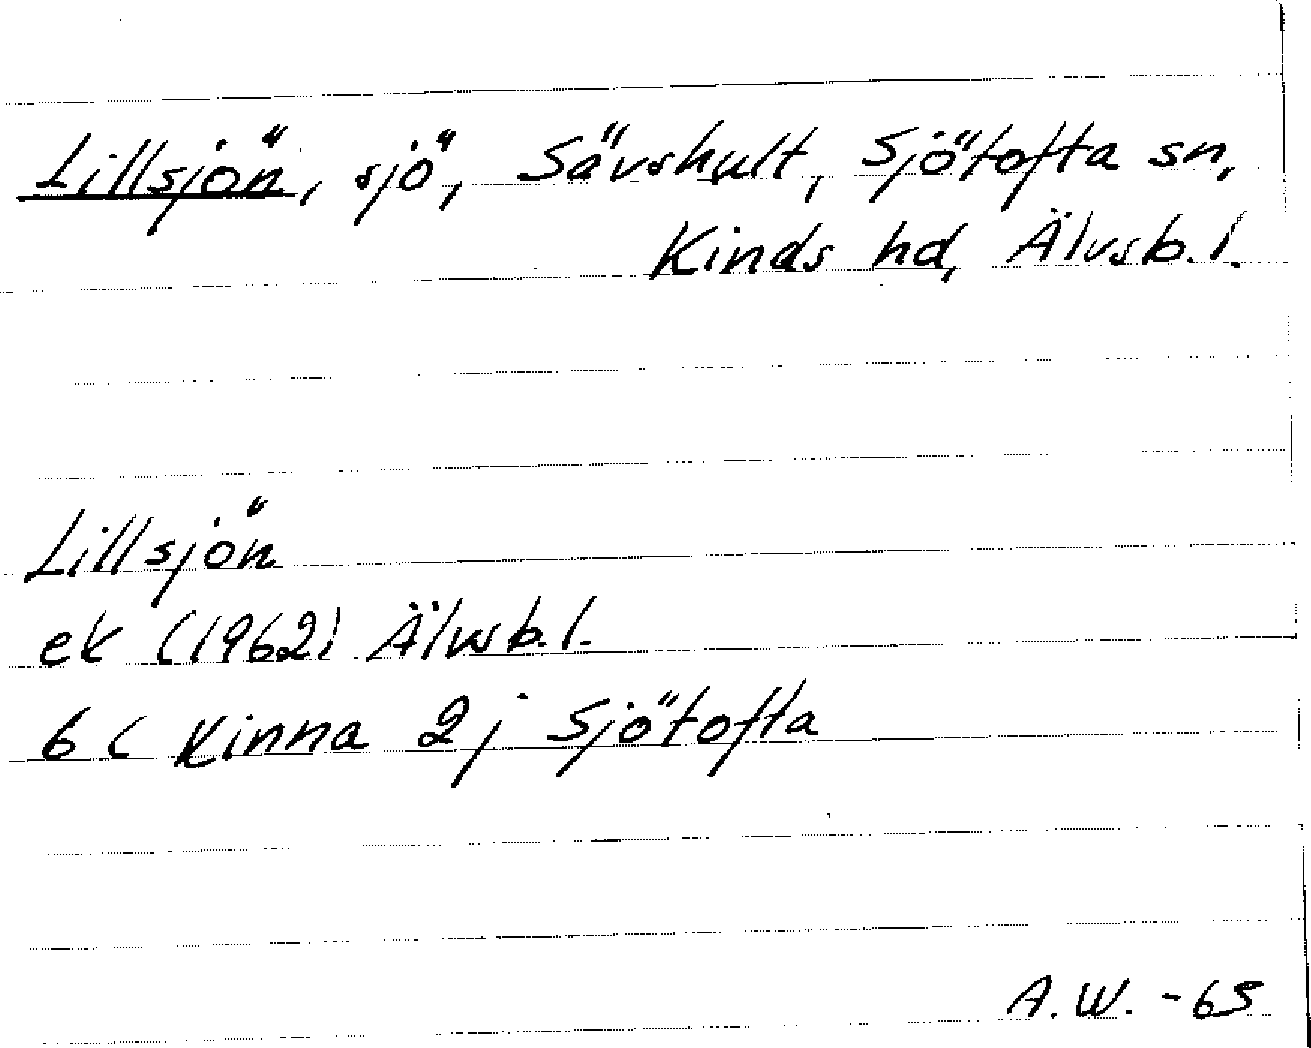 Lillsjön, sjö, Sävshult, Sjötofta sn,
Kinds hd, Älvsb. l.
Lillsjön
ek (1962) Älvsb. l.
6 C Kinna 2 j Sjötofta
A.W. -65